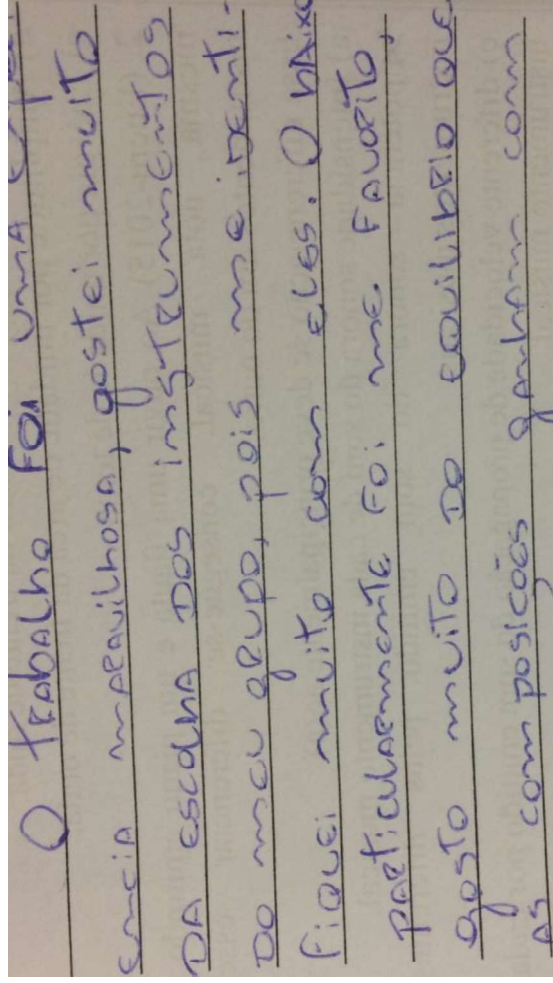 O trabalho foi uma experi-
ência maravilhosa, gostei muito
da escolha dos instrumentos
do meu grupo, pois me identi-
fiquei muito com eles. O baixo
particularmente foi me favorito,
gosto muito do equilibrio que
as composições ganham com